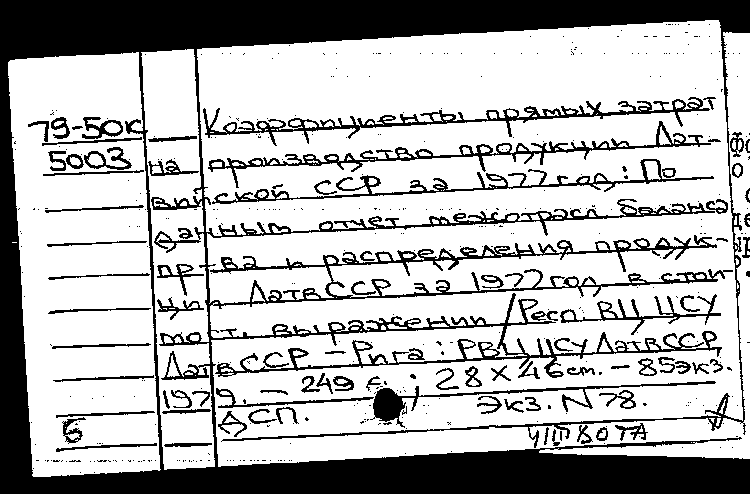 79-50к Коэффициенты прямых затрат
5003 на производство продукции Лат-
вийской ССР за 1977 год: По
данным отчет. межотрасл. баланса
пр-ва и распределения продук-
ции ЛатвССР за 1977 год в стои-
мост. выражении / Респ. ВЦ ЦСУ
ЛатвССР – Рига: РВЦ ЦСУ ЛатвССР,
1979. – 249 с.; 28×46 cm. – 85экз.
ДСП. Экз. N 78.
6